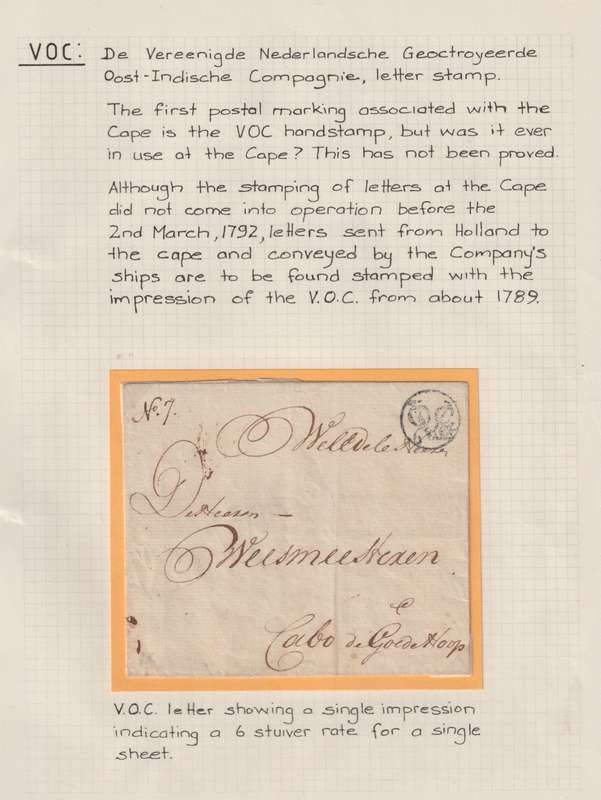 VOC: De Vereenigde Nederlandsche Geoctroyeerde
Oost-Indische Compagnie, letter stamp.
The first postal marking associated with the
Cape is the VOC handstamp, but was it ever
in use at the Cape? This has not been proved.
Although the stamping of letters at the Cape
did not come into operation before the
2nd March, 1792, letters sent from Holland to
the cape and conveyed by the Company's
ships are to be found stamped with the
impression of the V.O.C. from about 1789.
No. 7.
De Heeren —
Weesmeesteren
Cabo de Goede Hoop
V.O.C. letter showing a single impression
indicating a 6 stuiver rate for a single
sheet.